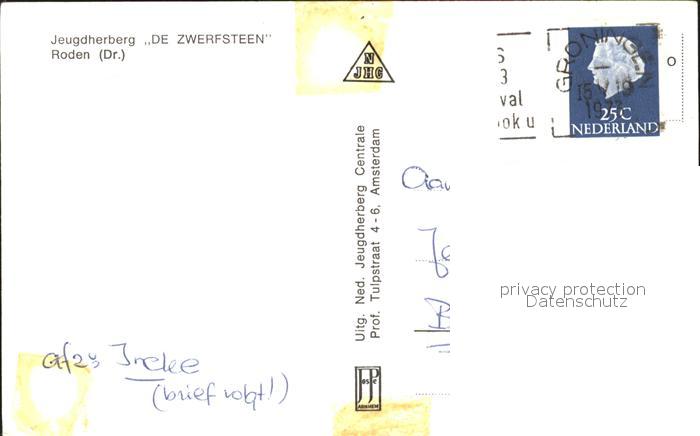 Jeugdherberg „DE ZWERFSTEEN"
Roden (Dr.)
N
JHC
S
3
val
ook u
GRONINGEN
15 V 19
1973
25C
NEDERLAND
Uitg. Ned. Jeugdherberg Centrale
Prof. Tulpstraat 4 - 6, Amsterdam
Aan
privacy protection
Datenschutz
afz: Ineke
(brief volgt!)
JosPe
ARNHEM